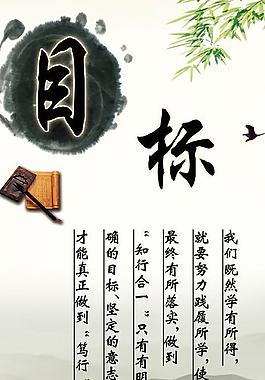 目标
我们既然学有所得，
就要努力践履所学，使
最终有所落实，做到
“知行合一”只有有明
确的目标、坚定的意志
才能真正做到“笃行”